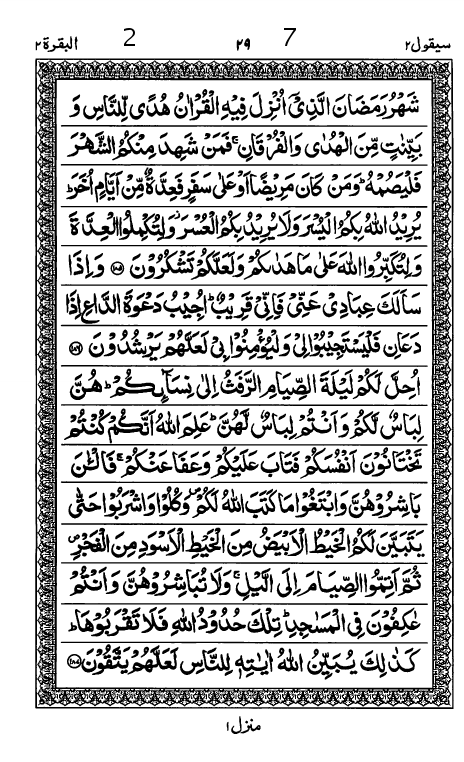 البقرة ٢ 2 ٢٩ 7 سيقول ٢
شَهْرُ رَمَضَانَ الَّذِىْٓ اُنْزِلَ فِيْهِ الْقُرْاٰنُ هُدًى لِّلنَّاسِ وَ
بَيِّنٰتٍ مِّنَ الْهُدٰى وَالْفُرْقَانِ ۚ فَمَنْ شَهِدَ مِنْكُمُ الشَّهْرَ
فَلْيَصُمْهُ ؕ وَمَنْ كَانَ مَرِيْضًا اَوْ عَلٰى سَفَرٍ فَعِدَّةٌ مِّنْ اَيَّامٍ اُخَرَ ؕ
يُرِيْدُ اللّٰهُ بِكُمُ الْيُسْرَ وَلَا يُرِيْدُ بِكُمُ الْعُسْرَ ۫ وَلِتُكْمِلُوا الْعِدَّةَ
وَلِتُكَبِّرُوا اللّٰهَ عَلٰى مَا هَدٰىكُمْ وَلَعَلَّكُمْ تَشْكُرُوْنَ ﴿۱۸۵﴾ وَاِذَا
سَاَلَكَ عِبَادِىْ عَنِّىْ فَاِنِّىْ قَرِيْبٌ ؕ اُجِيْبُ دَعْوَةَ الدَّاعِ اِذَا
دَعَانِ فَلْيَسْتَجِيْبُوْا لِىْ وَلْيُؤْمِنُوْا بِىْ لَعَلَّهُمْ يَرْشُدُوْنَ ﴿۱۸۶﴾
اُحِلَّ لَكُمْ لَيْلَةَ الصِّيَامِ الرَّفَثُ اِلٰى نِسَآئِكُمْ ؕ هُنَّ
لِبَاسٌ لَّكُمْ وَاَنْتُمْ لِبَاسٌ لَّهُنَّ ؕ عَلِمَ اللّٰهُ اَنَّكُمْ كُنْتُمْ
تَخْتَانُوْنَ اَنْفُسَكُمْ فَتَابَ عَلَيْكُمْ وَعَفَا عَنْكُمْ ۚ فَالْـٰٔنَ
بَاشِرُوْهُنَّ وَابْتَغُوْا مَا كَتَبَ اللّٰهُ لَكُمْ ۪ وَكُلُوْا وَاشْرَبُوْا حَتّٰى
يَتَبَيَّنَ لَكُمُ الْخَيْطُ الْاَبْيَضُ مِنَ الْخَيْطِ الْاَسْوَدِ مِنَ الْفَجْرِ ۪
ثُمَّ اَتِمُّوا الصِّيَامَ اِلَى الَّيْلِ ۚ وَلَا تُبَاشِرُوْهُنَّ وَاَنْتُمْ
عٰكِفُوْنَ فِى الْمَسٰجِدِ ؕ تِلْكَ حُدُوْدُ اللّٰهِ فَلَا تَقْرَبُوْهَا ؕ
كَذٰلِكَ يُبَيِّنُ اللّٰهُ اٰيٰتِهٖ لِلنَّاسِ لَعَلَّهُمْ يَتَّقُوْنَ ﴿۱۸۷﴾
منزل ۱